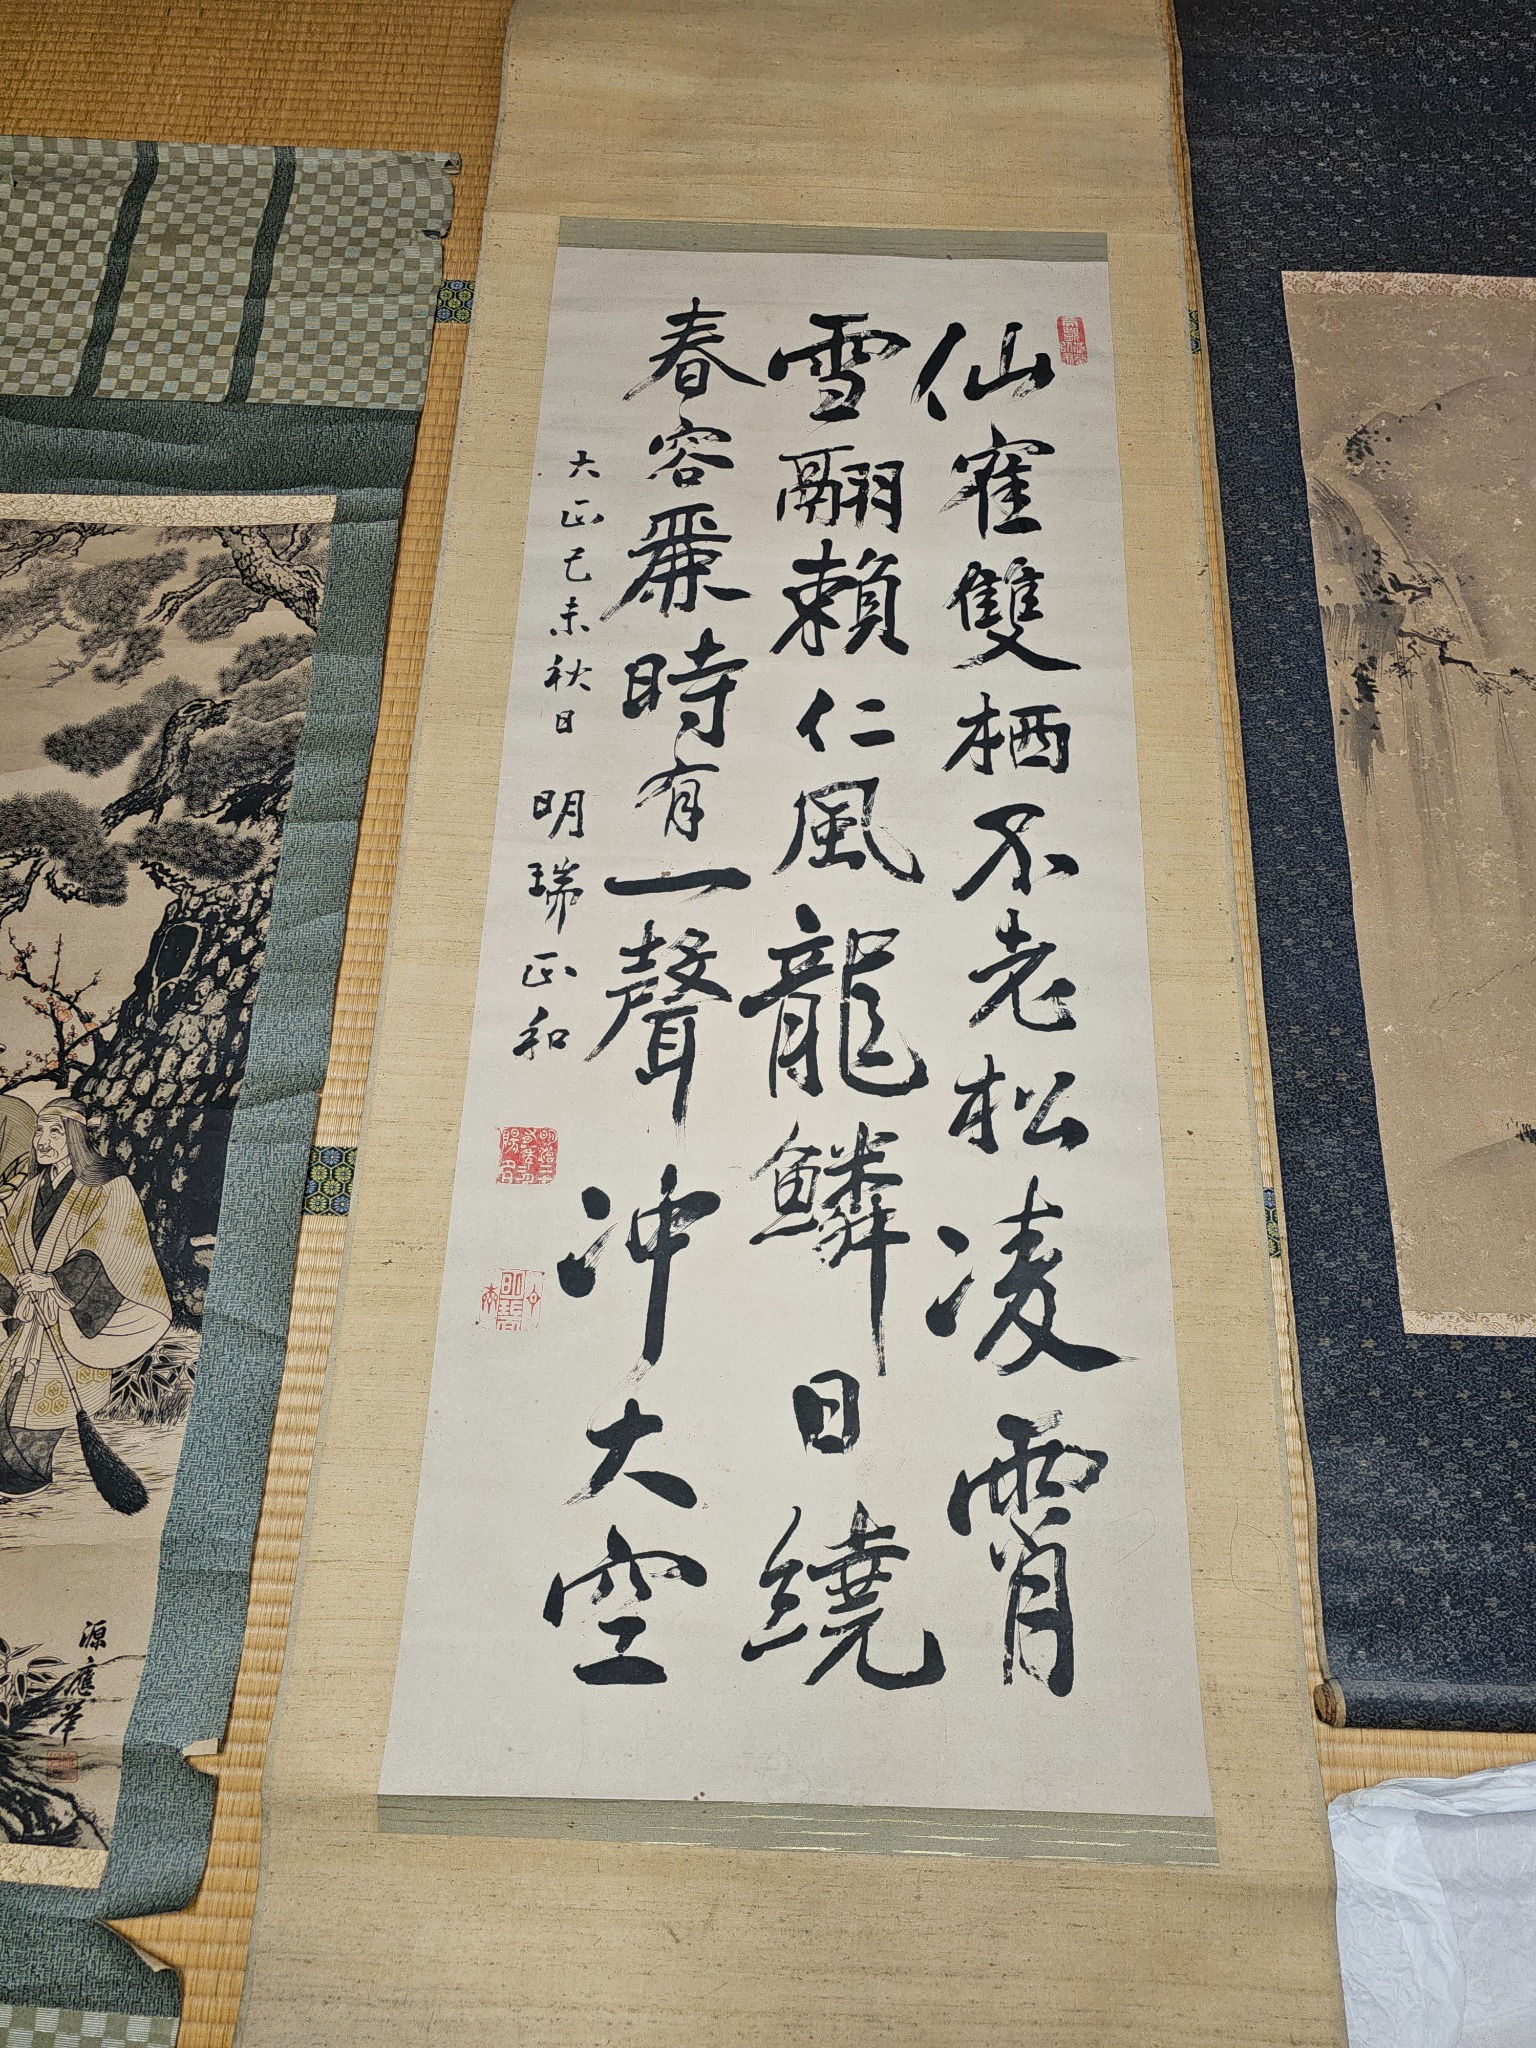 仙寉雙栖不老松凌霄
雪翮賴仁風龍鱗日繞
春容麗時有一聲冲大空
大正己未秋日 明瑞正和
源應舉